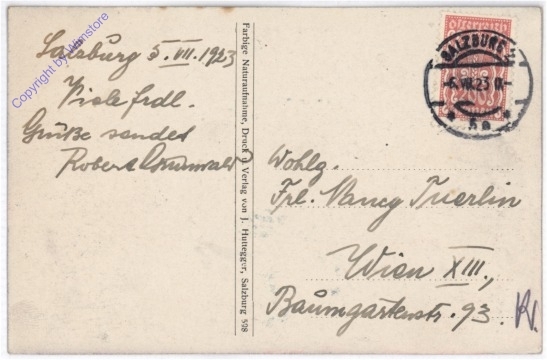 Salzburg 5. VII. 1923
Viele frdl.
Grüße sendet
Robert Grunwald
Copyright by Wimstore
Farbige Naturaufnahme, Druck u. Verlag von J. Huttegger, Salzburg 528
österreich
SALZBURG 2
-6.VII.23 IX-
* 5a *
Wohlg.
Frl. Nancy Tuerlin
Wien XIII.,
Baumgartenstr. 93.